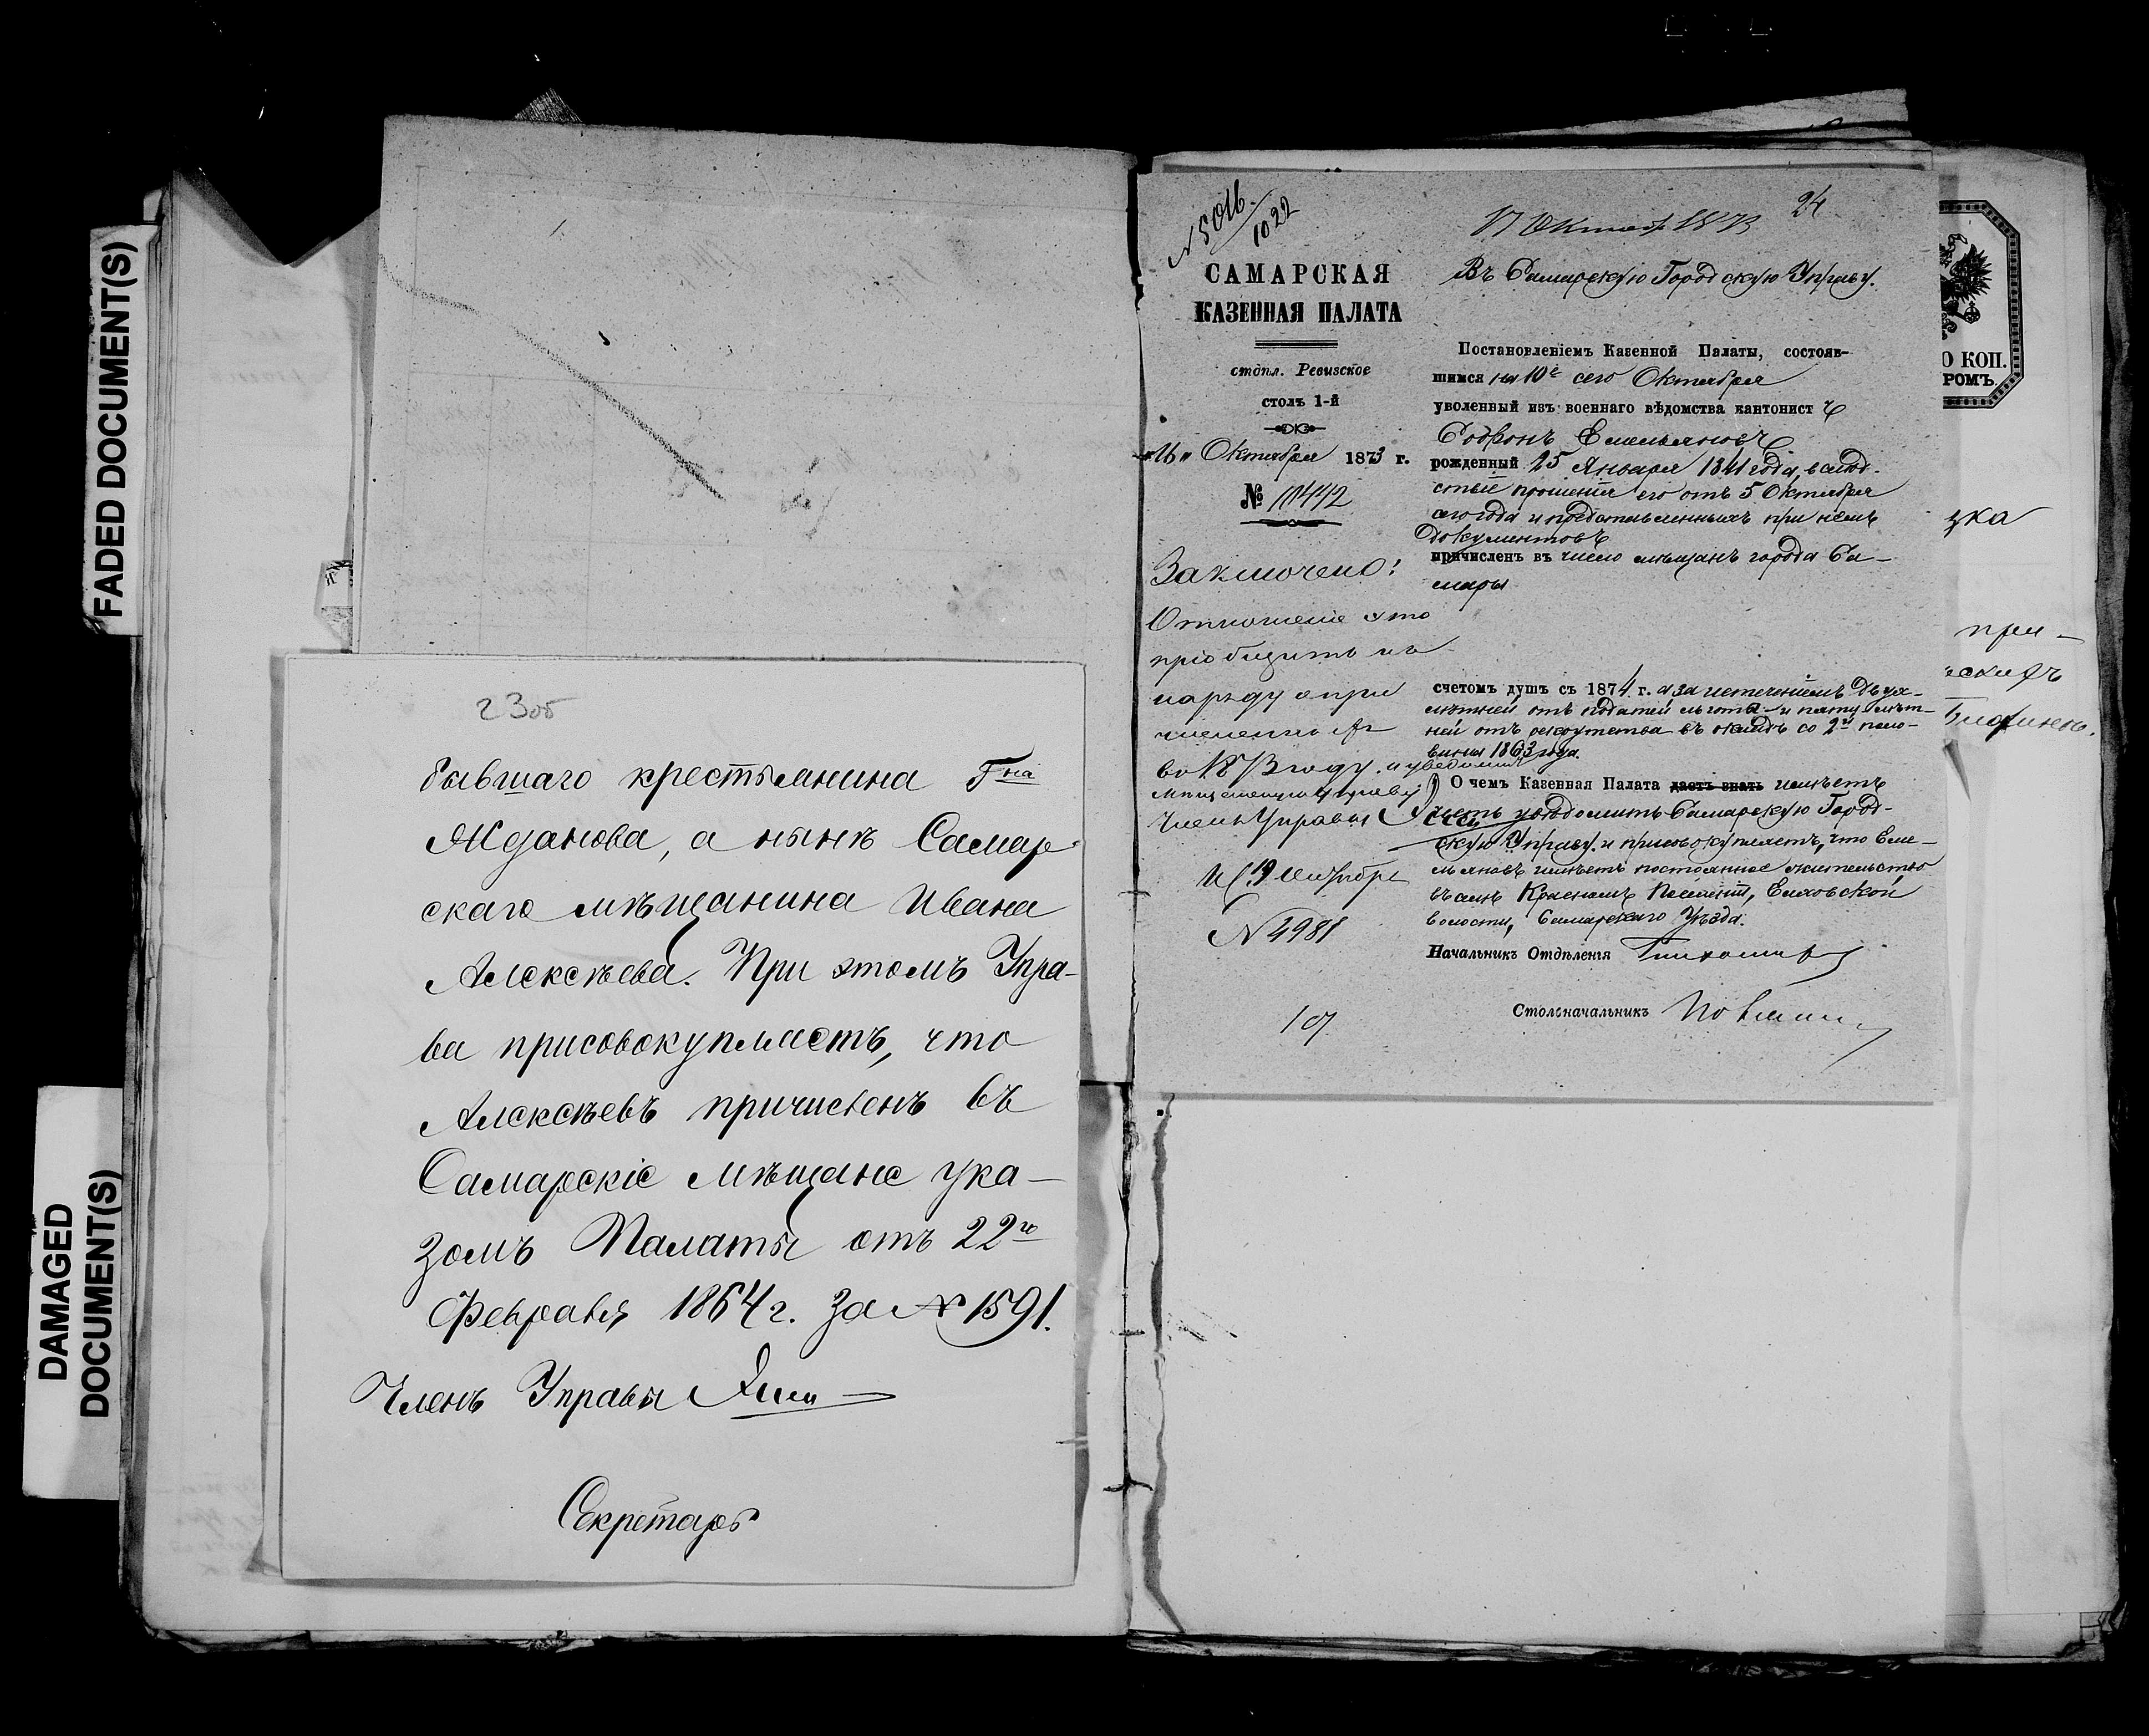 FADED DOCUMENT(S)
DAMAGED
DOCUMENT(S)
23об
бывшаго крестьянина Г на
Жданова, а нынѣ Самар
скаго мѣщанина Ивана
Алексѣева. При этомъ Упра-
ва присовокупляетъ, что
Алексѣевъ причисленъ въ
Самарскіе мѣщане ука-
зомъ Палаты отъ 22го
Февраля 1864 г. за № 1591.
Членъ Управы
Секретарь
№ 5016.
1022
САМАРСКАЯ
КАЗЕННАЯ ПАЛАТА
отдѣл. Ревизское
столъ 1-й
"16" Октября 1873 г.
№ 10442
Заключено:
Отношеніе это
пріобщить къ
наряду о при
численныхъ
въ 1873 году. и увѣдомить
Мѣщанскую Управу
Членъ Управы
№ 4981
107
17 Октяб 1873
24
Въ Самарскую Городскую Управу.
Постановленіемъ Казенной Палаты, состояв-
шимся на 10е сего Октября
уволенный изъ военнаго вѣдомства кантонист ъ
Софронъ Емельяновъ
рожденный 25 Января 1841 года, вслѣд-
ствіе прошенія его отъ 5 Октября
сего года и представленныхъ при немъ
документовъ
причисленъ въ число мѣщанъ города Са-
мары
счетомъ душъ съ 1874 г. а за истеченіемъ двух-
лѣтней отъ податей льготы и пяти лѣт-
ней отъ рекрутства въ окладъ со 2й поло-
вины 1863 года.
О чемъ Казенная Палата даетъ знать имѣетъ
честь увѣдомить Самарскую Город-
скую Управу. и присовокупляетъ, что Еме-
льяновъ имѣетъ постоянное жительство
въ селѣ Красномъ Поселеніи, Елховской
волости, Самарскаго Уѣзда.
Начальникъ Отдѣленія Тихомиров
Столоначальникъ
О КОП.
РОМЪ.
ука
при-
ескихъ